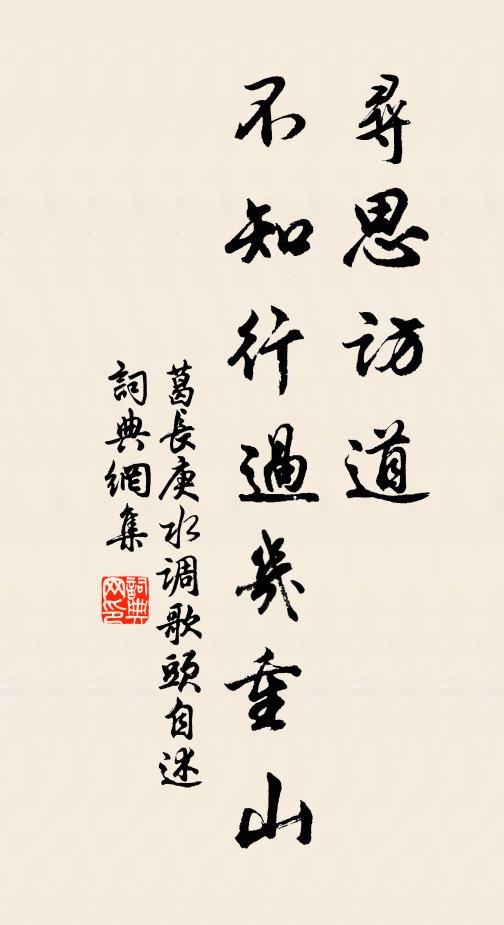 尋思訪道
不知行過幾重山
葛長庚水调歌頭自述
詞典網集
詞典
网印